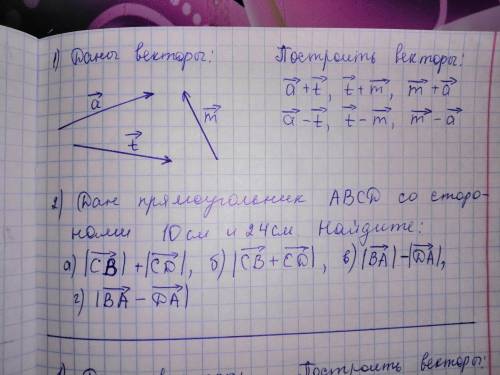 1) Даны векторы: Построить векторы:
a⃗ m⃗ a⃗ + t⃗, t⃗ + m⃗, m⃗ + a⃗
t⃗ a⃗ - t⃗, t⃗ - m⃗, m⃗ - a⃗
2) Дан прямоугольник ABCD со сторо-
нами 10 см и 24 см. Найдите:
а) |C⃗B⃗| + |C⃗D⃗|, б) |C⃗B⃗ + C⃗D⃗|, в) |B⃗A⃗| - |D⃗A⃗|,
г) |B⃗A⃗ - D⃗A⃗|
Построить векторы: